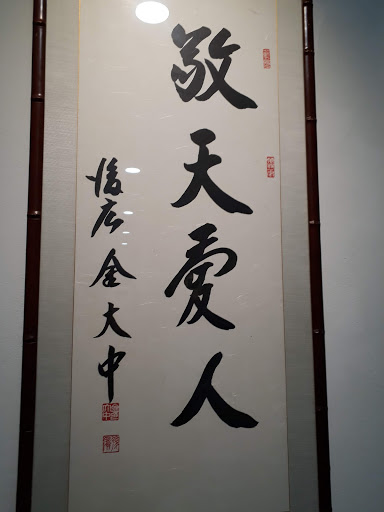 敬天愛人
後広金大中